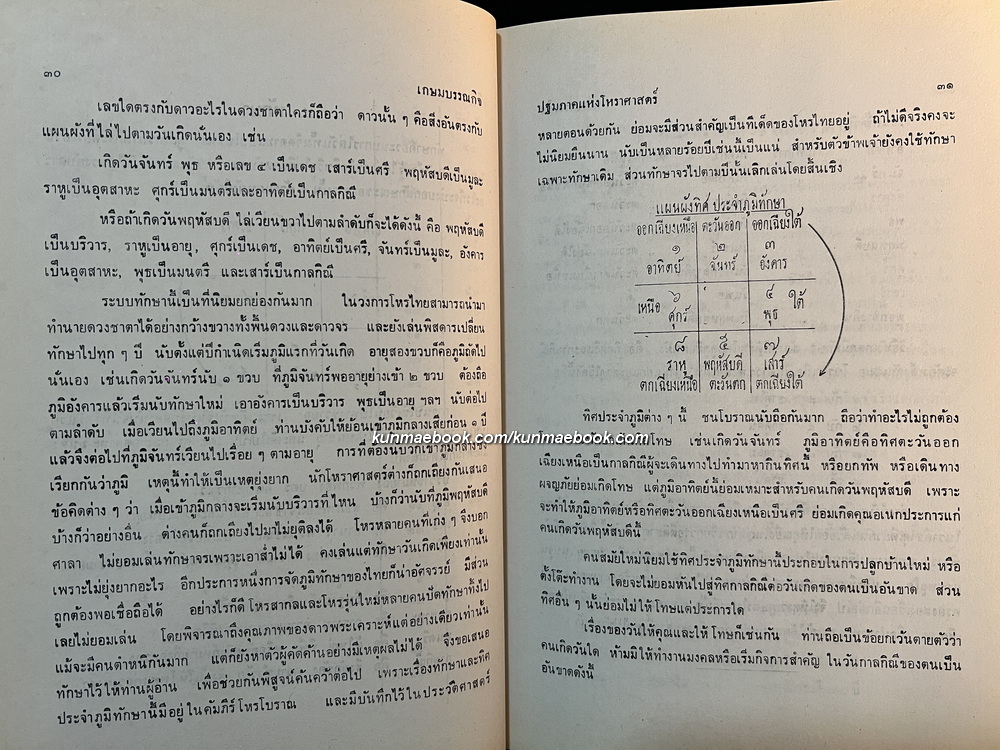 ๓๐
เกษมบรรณกิจ
เลขใดตรงกับดาวอะไรในดวงชาตาใครก็ถือว่า ดาวนั้น ๆ คือสิ่งอันตรงกับ
แผนผังที่ไล่ไปตามวันเกิดนั่นเอง เช่น
เกิดวันจันทร์ พุธ หรือเลข ๔ เป็นเดช เสาร์เป็นศรี พฤหัสบดีเป็นมูละ
ราหูเป็นอุตสาหะ ศุกร์เป็นมนตรีและอาทิตย์เป็นกาลกิณี
หรือถ้าเกิดวันพฤหัสบดี ไล่เวียนขวาไปตามลำดับก็จะได้ดังนี้ คือ พฤหัสบดี
เป็นบริวาร, ราหูเป็นอายุ, ศุกร์เป็นเดช, อาทิตย์เป็นศรี, จันทร์เป็นมูละ, อังคาร
เป็นอุตสาหะ, พุธเป็นมนตรี และเสาร์เป็นกาลกิณี
ระบบทักษานี้เป็นที่นิยมยกย่องกันมาก ในวงการโหรไทยสามารถนำมา
ทำนายดวงชาตาได้อย่างกว้างขวางทั้งพื้นดวงและดาวจร และยังเล่นพิสดารเปลี่ยน
ทักษาไปทุก ๆ ปี นับตั้งแต่ปีกำเนิดเริ่มภูมิแรกที่วันเกิด อายุสองขวบก็คือภูมิถัดไป
นั่นเอง เช่นเกิดวันจันทร์นับ ๑ ขวบ ที่ภูมิจันทร์พออายุย่างเข้า ๒ ขวบ ต้องถือ
ภูมิอังคารแล้วเริ่มนับทักษาใหม่ เอาอังคารเป็นบริวาร พุธเป็นอายุ ฯลฯ นับต่อไป
ตามลำดับ เมื่อเวียนไปถึงภูมิอาทิตย์ ท่านบังคับให้ย้อนเข้าภูมิกลางเสียก่อน ๑ ปี
แล้วจึงต่อไปที่ภูมิจันทร์เวียนไปเรื่อย ๆ ตามอายุ การที่ต้องนับวกเข้าภูมิกลางซึ่ง
เรียกกันว่าภูมิ เหตุนี้ทำให้เป็นเหตุยุ่งยาก นักโหราศาสตร์ต่างก็ถกเถียงกันเสนอ
ข้อคิดต่าง ๆ ว่า เมื่อเข้าภูมิกลางจะเริ่มนับบริวารที่ไหน บ้างก็ว่านับที่ภูมิพฤหัสบดี
บ้างก็ว่าอย่างอื่น ต่างคนก็ถกเถียงไปมาไม่ยุติลงได้ โหรหลายคนที่เก่ง ๆ จึงบอก
ศาลา ไม่ยอมเล่นทักษาจรเพราะเอาส่ำไม่ได้ คงเล่นแต่ทักษาวันเกิดเพียงเท่านั้น
เพราะไม่ยุ่งยากอะไร อีกประการหนึ่งการจัดภูมิทักษาของไทยก็น่าอัศจรรย์ มีส่วน
ถูกต้องพอเชื่อถือได้ อย่างไรก็ดี โหรสากลและโหรรุ่นใหม่หลายคนปัดทักษาทิ้งไป
เลยไม่ยอมเล่น โดยพิจารณาถึงคุณภาพของดาวพระเคราะห์แต่อย่างเดียวเท่านั้น
แม้จะมีคนตำหนิกันมาก แต่ก็ยังหาตัวผู้คัดค้านอย่างมีเหตุผลไม่ได้ จึงขอเสนอ
ทักษาไว้ให้ท่านผู้อ่าน เพื่อช่วยกันพิสูจน์ค้นคว้าต่อไป เพราะเรื่องทักษาและทิศ
ประจำภูมิทักษานี้มีอยู่ในคัมภีร์โหรโบราณ และมีบันทึกไว้ในประวัติศาสตร์
๓๑
ปฐมภาคแห่งโหราศาสตร์
หลายตอนด้วยกัน ย่อมจะมีส่วนสำคัญเป็นทีเด็ดของโหรไทยอยู่ ถ้าไม่ดีจริงคงจะ
ไม่นิยมยืนนาน นับเป็นหลายร้อยปีเช่นนี้เป็นแน่ สำหรับตัวข้าพเจ้ายังคงใช้ทักษา
เฉพาะทักษาเดิม ส่วนทักษาจรไปตามปีนั้นเลิกเล่นโดยสิ้นเชิง
แผนผังทิศ ประจำภูมิทักษา
ออกเฉียงเหนือ ตะวันออก ออกเฉียงใต้
๑ ๒ ๓
อาทิตย์ จันทร์ อังคาร
เหนือ ๖ ๔ ใต้
ศุกร์ พุธ
๘ ๕ ๗
ราหู พฤหัสบดี เสาร์
ตกเฉียงเหนือ ตะวันตก ตกเฉียงใต้
ทิศประจำภูมิต่าง ๆ นี้ ชนโบราณนับถือกันมาก ถือว่าทำอะไรไม่ถูกต้อง
โทษ เช่นเกิดวันจันทร์ ภูมิอาทิตย์คือทิศตะวันออก
kunmaebook.com/kunmaebook.com
เฉียงเหนือเป็นกาลกิณีผู้จะเดินทางไปทำมาหากินทิศนี้ หรือยกทัพ หรือเดินทาง
ผจญภัยย่อมเกิดโทษ แต่ภูมิอาทิตย์นี้ย่อมเหมาะสำหรับคนเกิดวันพฤหัสบดี เพราะ
จะทำให้ภูมิอาทิตย์หรือทิศตะวันออกเฉียงเหนือเป็นศรี ย่อมเกิดคุณอเนกประการแก่
คนเกิดวันพฤหัสบดีนี้
คนสมัยใหม่นิยมใช้ทิศประจำภูมิทักษานี้ประกอบในการปลูกบ้านใหม่ หรือ
ตั้งโต๊ะทำงาน โดยจะไม่ยอมหันไปสู่ทิศกาลกิณีต่อวันเกิดของตนเป็นอันขาด ส่วน
ทิศอื่น ๆ นั้นย่อมไม่ให้โทษแต่ประการใด
เรื่องของวันให้คุณและให้โทษก็เช่นกัน ท่านถือเป็นข้อยกเว้นตายตัวว่า
คนเกิดวันใด ห้ามมิให้ทำงานมงคลหรือเริ่มกิจการสำคัญ ในวันกาลกิณีของตนเป็น
อันขาดดังนี้